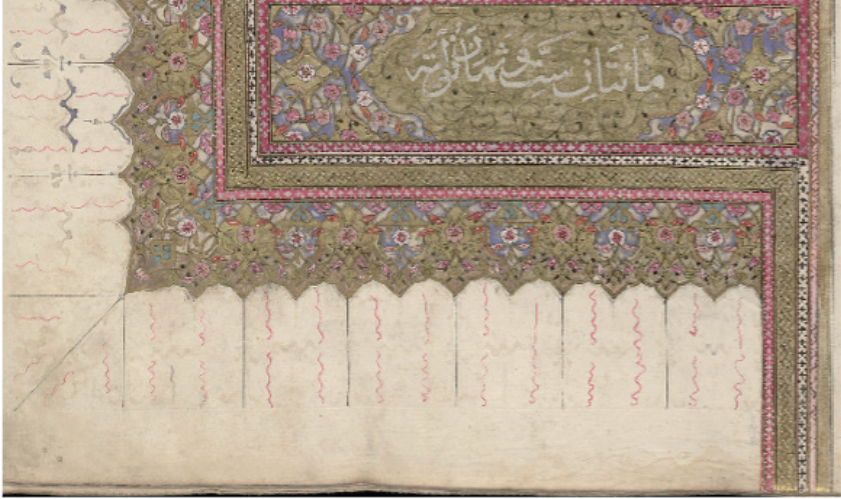 مائتان ست وثمانون آية